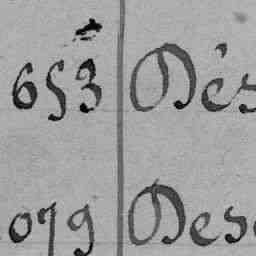 653 Dés
079 Des